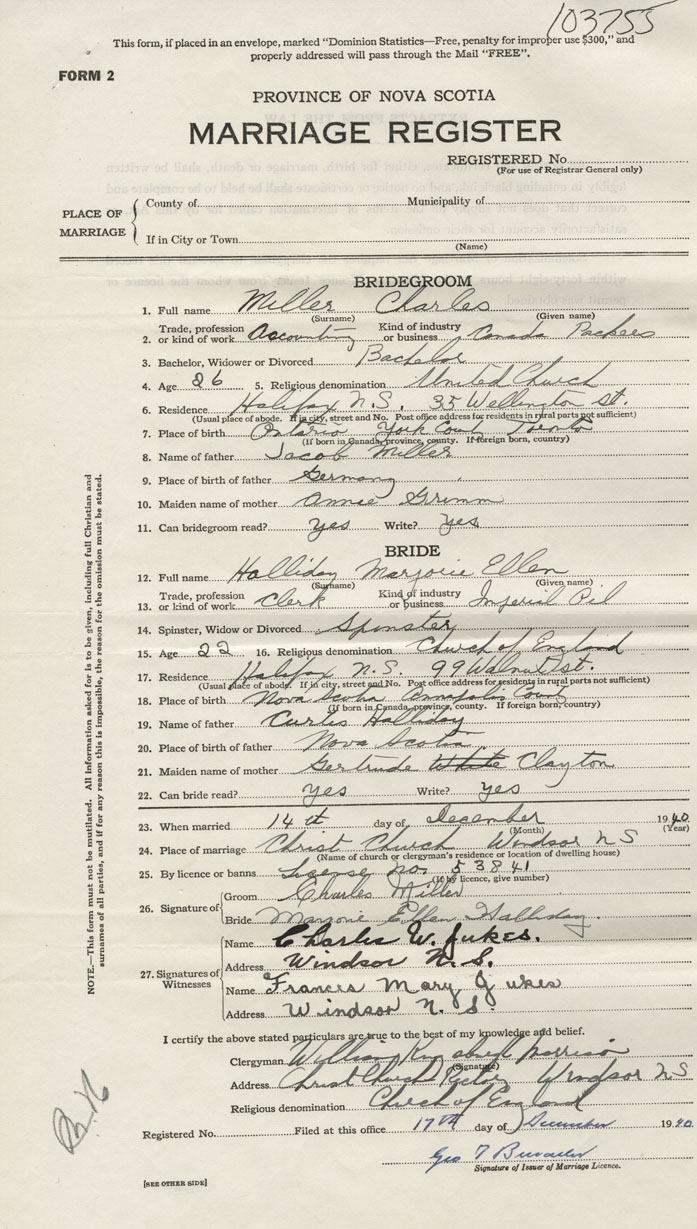 103755
This form, if placed in an envelope, marked "Dominion Statistics—Free, penalty for improper use $300," and
properly addressed will pass through the Mail "FREE".
FORM 2
PROVINCE OF NOVA SCOTIA
MARRIAGE REGISTER
REGISTERED No.
(For use of Registrar General only)
PLACE OF MARRIAGE
County of Municipality of
If in City or Town
(Name)
BRIDEGROOM
1. Full name Miller Charles
(Surname) (Given name)
2. Trade, profession or kind of work Accounting Kind of industry or business Canada Packers
3. Bachelor, Widower or Divorced Bachelor
4. Age 26 5. Religious denomination United Church
6. Residence Halifax N.S. 35 Wellington St.
(Usual place of abode. If in city, street and No. Post office address for residents in rural parts not sufficient)
7. Place of birth Ontario York Toronto
(If born in Canada, province, county. If foreign born, country)
8. Name of father Jacob Miller
9. Place of birth of father Germany
10. Maiden name of mother Annie Grimm
11. Can bridegroom read? yes Write? yes
BRIDE
12. Full name Halliday Marjorie Ellen
(Surname) (Given name)
13. Trade, profession or kind of work Clerk Kind of industry or business Imperial Oil
14. Spinster, Widow or Divorced Spinster
15. Age 22 16. Religious denomination Church of England
17. Residence Halifax N.S. 99 Walnut St.
(Usual place of abode. If in city, street and No. Post office address for residents in rural parts not sufficient)
18. Place of birth Nova Scotia Annapolis
(If born in Canada, province, county. If foreign born, country)
19. Name of father Curtis Halliday
20. Place of birth of father Nova Scotia
21. Maiden name of mother Gertrude White Clayton
22. Can bride read? yes Write? yes
23. When married 14th day of December 1940
(Month) (Year)
24. Place of marriage Christ Church Windsor NS
(Name of church or clergyman's residence or location of dwelling house)
25. By licence or banns License no. 53841
(If by licence, give number)
26. Signature of
Groom Charles Miller
Bride Marjorie Ellen Halliday.
27. Signatures of Witnesses
Name Charles W. Jukes.
Address Windsor N.S.
Name Frances Mary Jukes
Address Windsor N.S.
I certify the above stated particulars are true to the best of my knowledge and belief.
Clergyman William Morrison
(Signature)
Address Christ Church Rector Windsor NS
Religious denomination Church of England
Registered No. Filed at this office 17th day of December 1940.
Geo
Signature of Issuer of Marriage Licence.
[SEE OTHER SIDE]
NOTE.—This form must not be mutilated. All information asked for is to be given, including full Christian and
surnames of all parties, and if for any reason this is impossible, the reason for the omission must be stated.